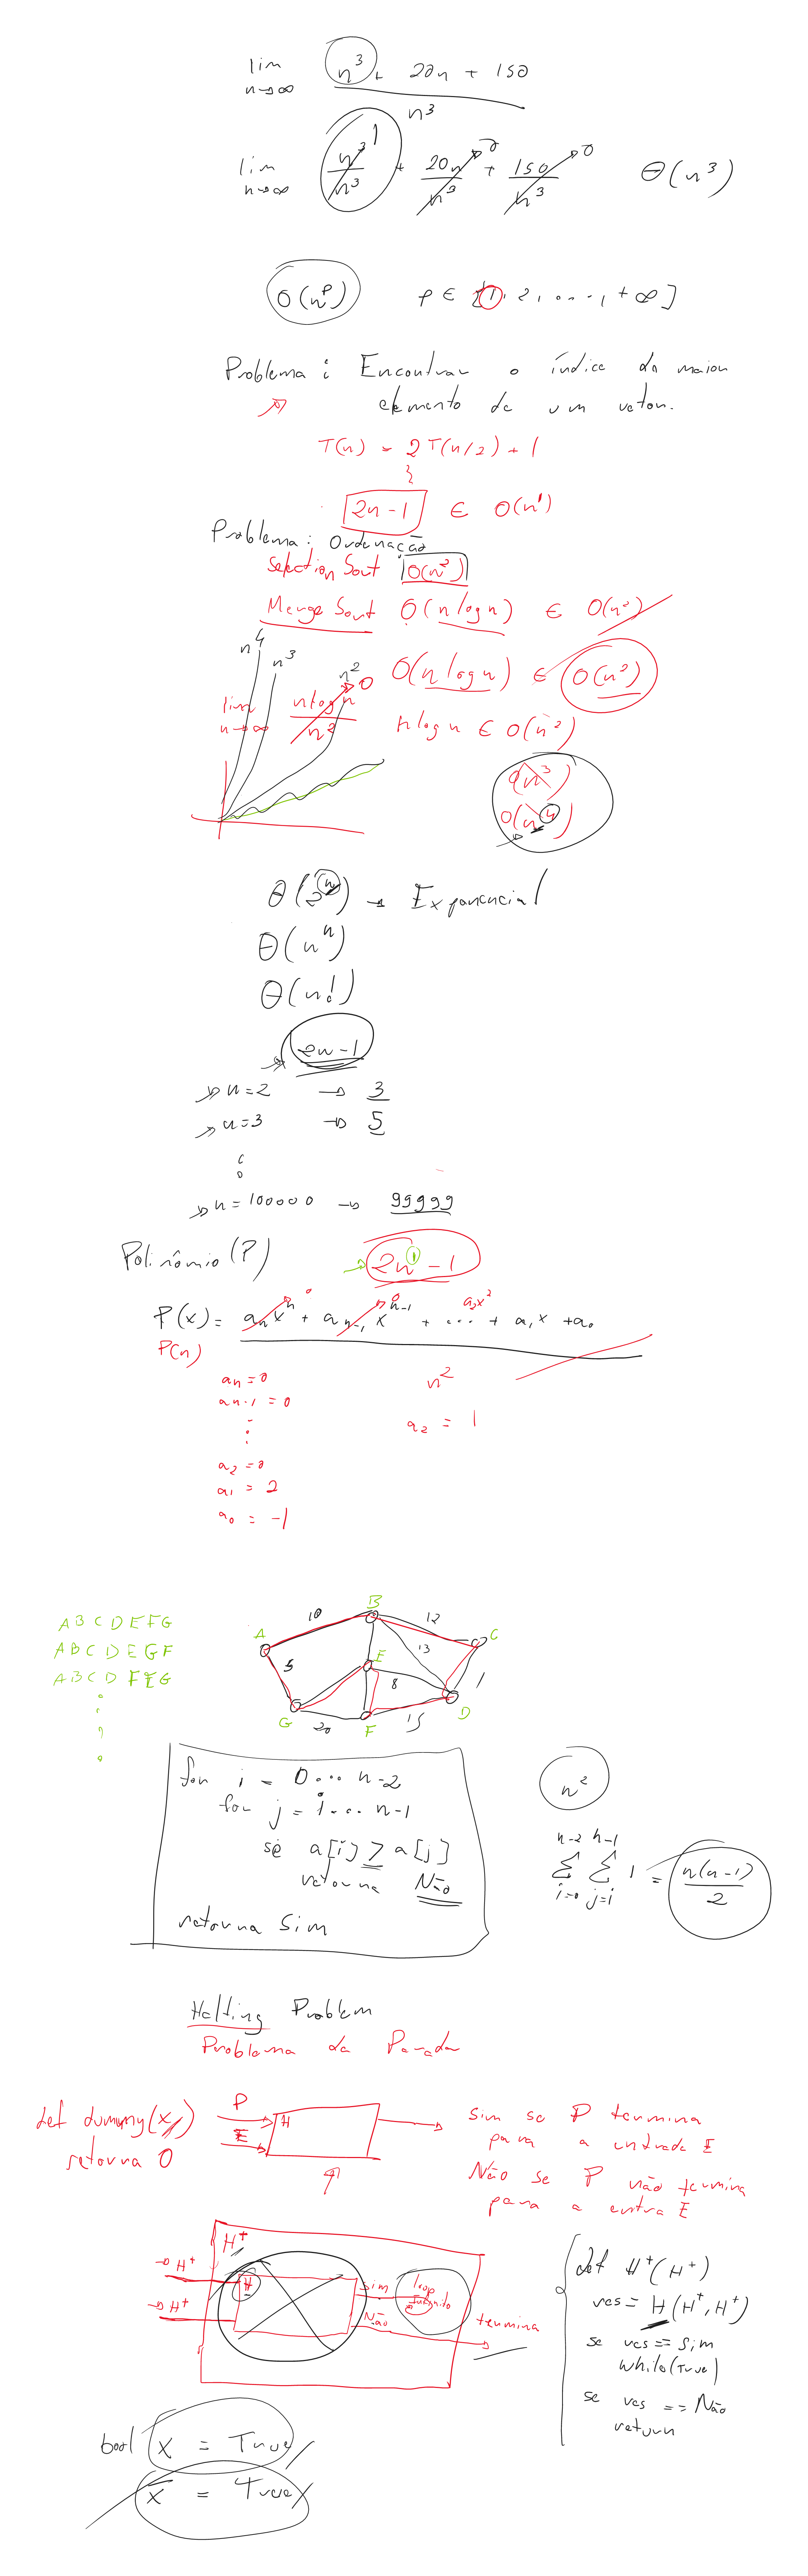 lim n→∞ n³ + 20n + 150
n³
lim n→∞ n³/n³ 1 + 20n/n³ 0 + 150/n³ 0 Θ(n³)
O(n^p) p ∈ [1, 2, ..., +∞]
Problema : Encontrar o índice do maior
elemento de um vetor.
T(n) = 2T(n/2) + 1
2n-1 ∈ O(n¹)
Problema: Ordenação
Selection Sort O(n²)
Merge Sort O(n log n) ∈ O(n²)
n⁴ n³ n²
O(n log n) ∈ O(n²)
lim n→∞ n log n / n² 0
n log n ∈ O(n²)
O(n³)
O(n⁴)
Θ(2ⁿ) → Exponencial
Θ(nⁿ)
Θ(n!)
2n-1
n=2 → 3
n=3 → 5
n=100000 → 99999
Polinômio (P) 2n¹ - 1
P(x) = aₙxⁿ + aₙ₋₁xⁿ⁻¹ + ... + a₂x² + a₁x + a₀
P(n)
an = 0 n²
an-1 = 0 a₂ = 1
a₂ = 0
a₁ = 2
a₀ = -1
A B C D E F G
A B C D E G F
A B C D F E G
A 10 B 12 C
5 E 13 1
8
G 20 F 15 D
for i = 0 ... n-2
for j = i ... n-1
se a[i] > a[j]
retorna Não
retorna Sim
n²
n-2 n-1
Σ Σ 1 = n(n-1)/2
i=0 j=i
Halting Problem
Problema da Parada
def dummy(x)
retorna 0
P
E
H
Sim se P termina
para a entrada E
Não se P não termina
para a entra E
H⁺
→ H⁺
→ H⁺
H
Sim
loop
infinito
Não
termina
def H⁺(H⁺)
res = H(H⁺, H⁺)
se res == Sim
while(True)
se res == Não
return
bool x = True
x = True